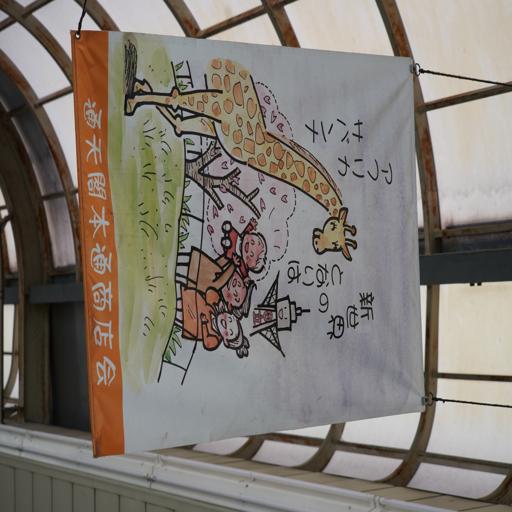 新世界
の
となりは
アフリカ
サバンナ
通天閣本通商店会